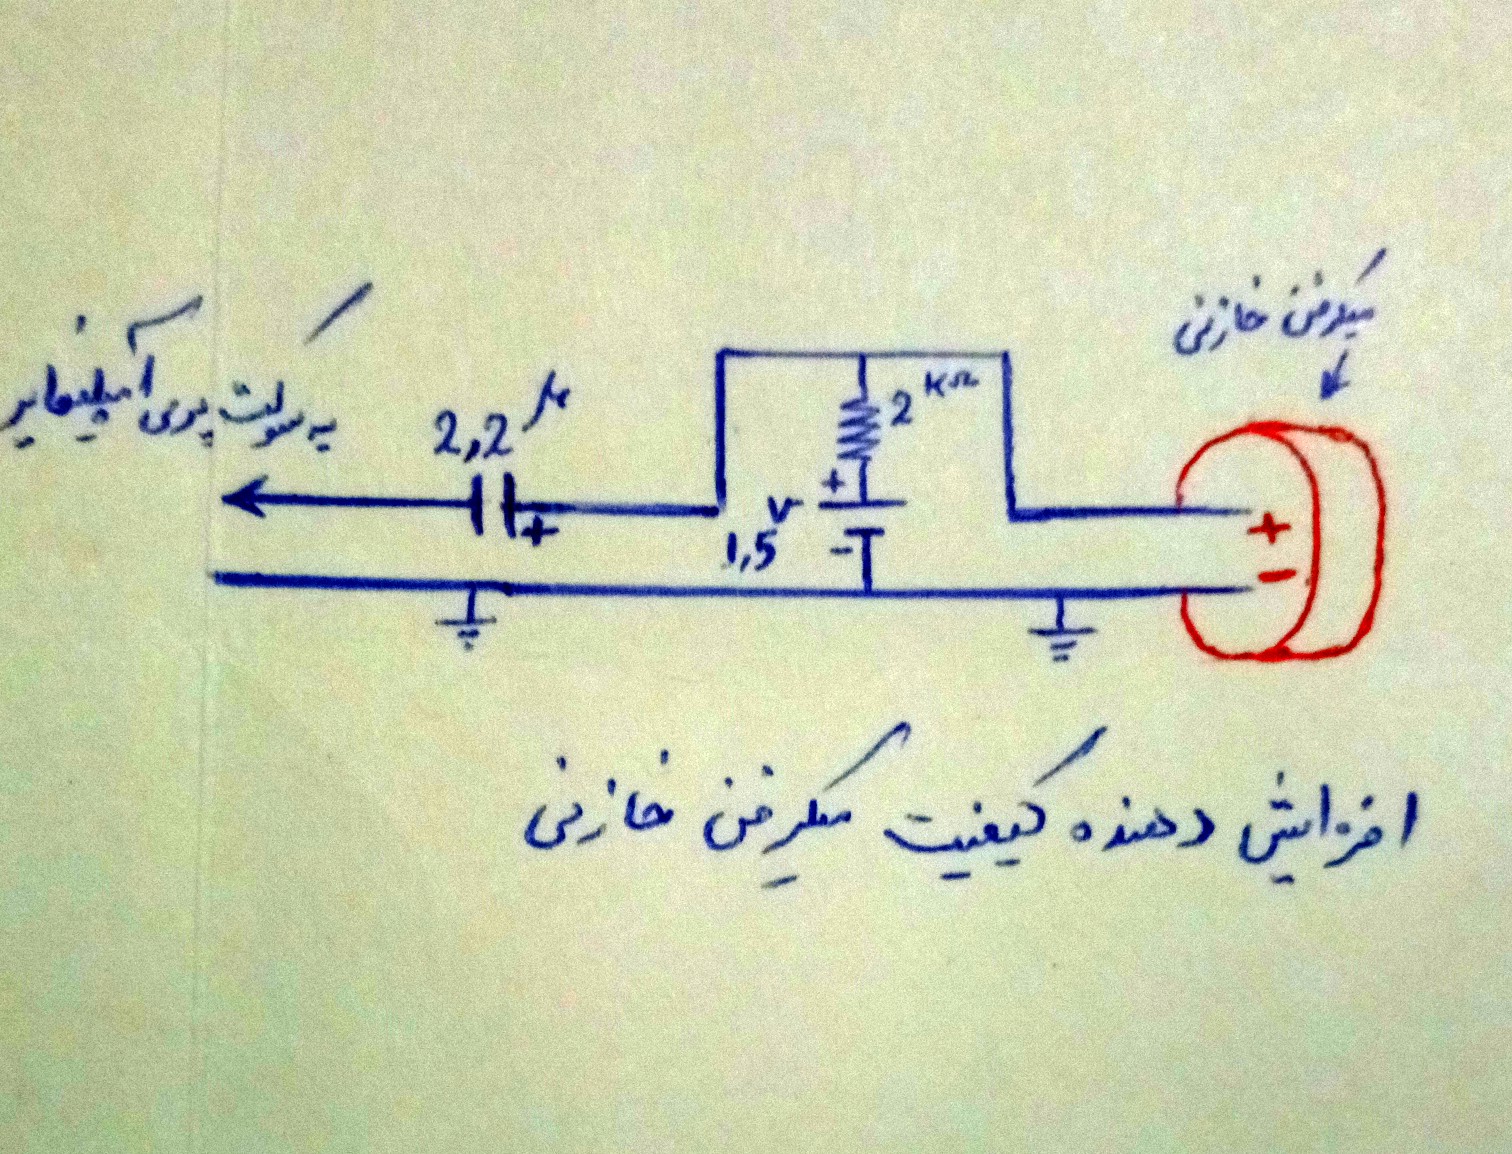 میکرفن خازنی
به سوکت پری آمپلیفایر
2,2 μ
+
2 KΩ
+
1,5 V
-
+
-
افزایش دهنده کیفیت میکرفن خازنی